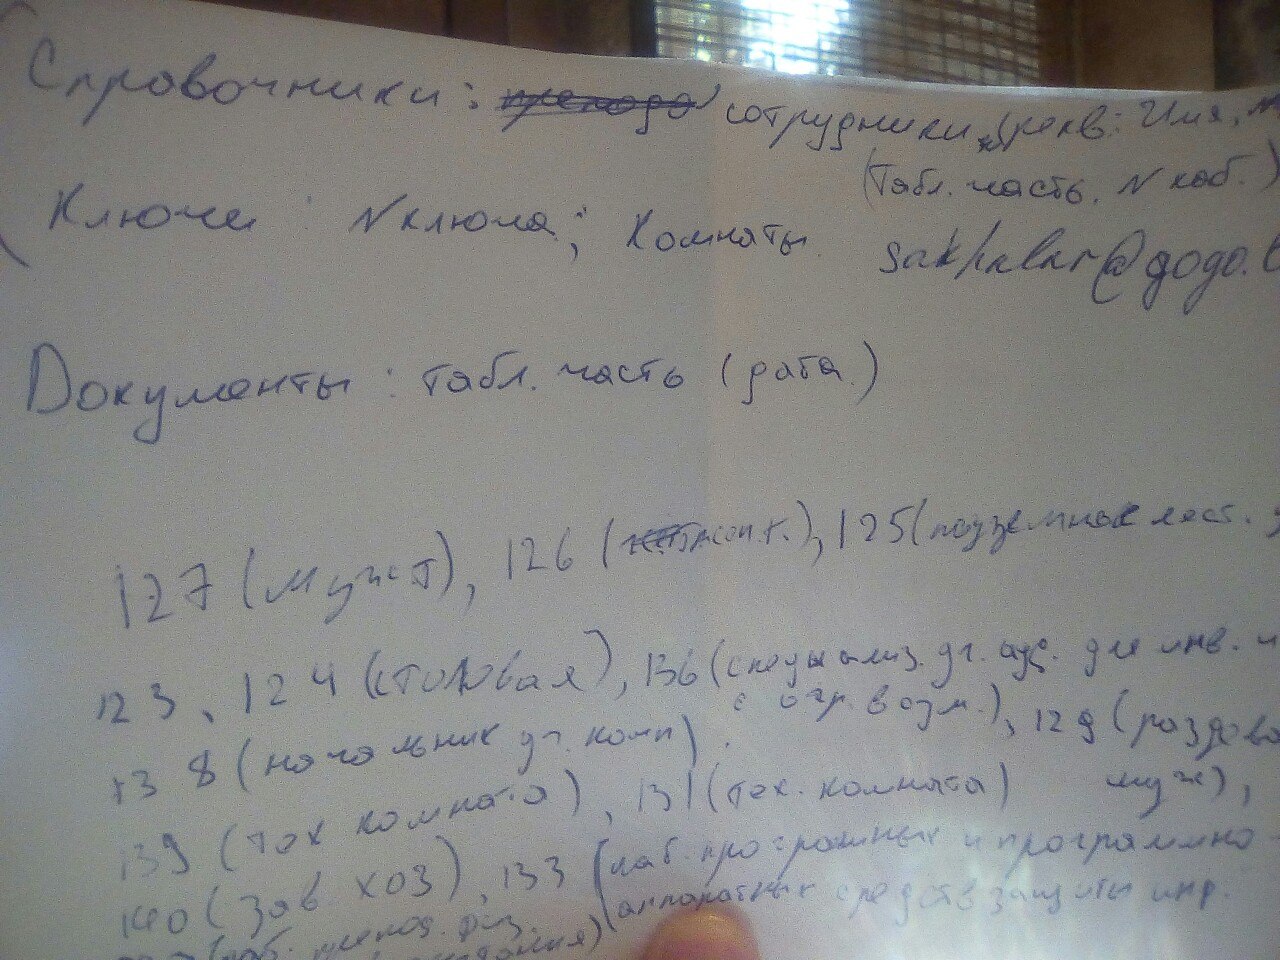 Справочники: сотрудники (рекв: Имя,
(Табл. часть. N каб.)
Ключи : N ключа; Комнаты.
Документы : табл. часть (дата.)
127 (муж Т), 126 ( ), 125 (подземная
123, 124 (столовая), 136 (специализ. уч. ауд. для инв. и
с огр. возм.), 129 (раздева
138 (начальник уч. комп).
муж),
139 (тех комната), 131 (тех. комната)
140 (зав хоз), 133 (каб. программных и программно-
аппаратных средств защиты инф.